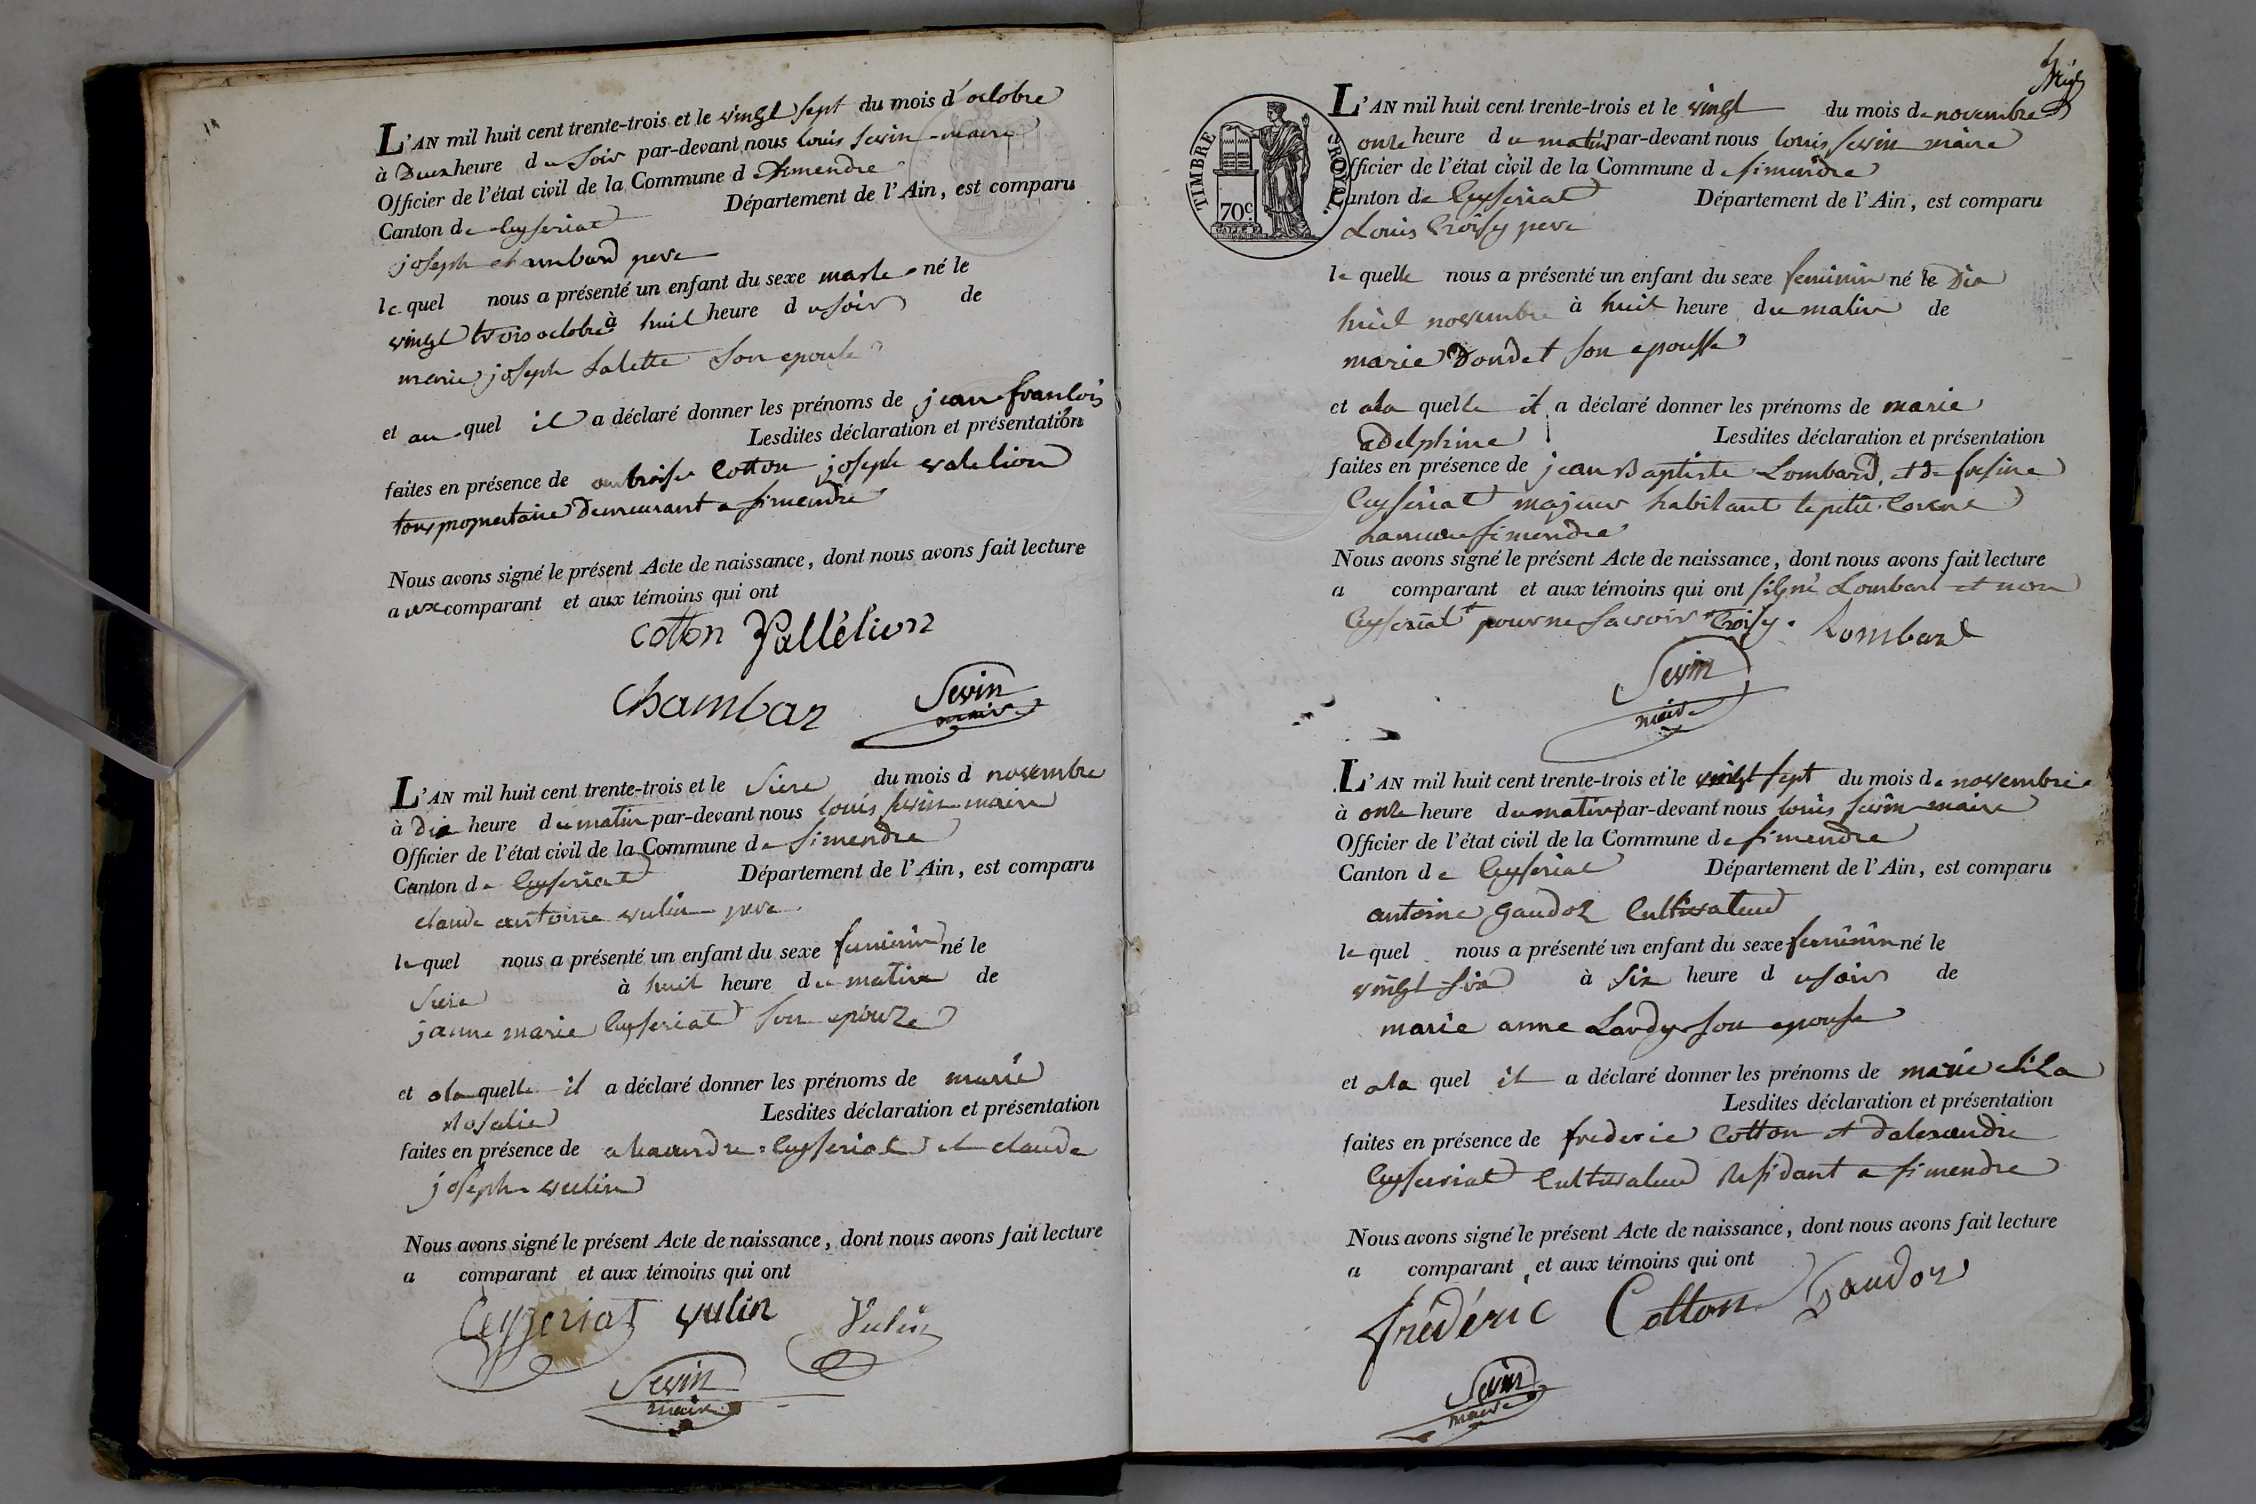 L'AN mil huit cent trente-trois et le vingt sept du mois d'octobre
à Deux heure du soir par-devant nous louis sevin maire
Officier de l'état civil de la Commune de simendre
Canton de Ceyseriat Département de l'Ain, est comparu
joseph chambard pere
lequel nous a présenté un enfant du sexe masle né le
vingt trois octobre à huit heure du soir de
marie joseph Salette son epouse
et au quel il a déclaré donner les prénoms de jean françois
Lesdites déclaration et présentation
faites en présence de ambroise Cotton joseph valelion
tous proprietaire Demeurant a simendre
Nous avons signé le présent Acte de naissance, dont nous avons fait lecture
aux comparant et aux témoins qui ont
cotton Vallélion
Chambar Sevin
maire
L'AN mil huit cent trente-trois et le Sieze du mois d novembre
à Dix heure du matin par-devant nous louis sevin maire
Officier de l'état civil de la Commune de Simendre
Canton de Ceyseriat Département de l'Ain, est comparu
claude antoine vulin pere
lequel nous a présenté un enfant du sexe feminin né le
Sieze à huit heure du matin de
janne marie Ceyseriat son epouze
et a la quelle il a déclaré donner les prénoms de marie
Rosalie Lesdites déclaration et présentation
faites en présence de alexandre Ceyseriat et claude
joseph vulin
Nous avons signé le présent Acte de naissance, dont nous avons fait lecture
a comparant et aux témoins qui ont
Ceyzeriat vulin Vulin
Sevin
maire
TIMBRE ROYAL.
70c
L'AN mil huit cent trente-trois et le vingt du mois de novembre
onze heure du matin par-devant nous louis sevin maire
Officier de l'état civil de la Commune de simendre
Canton de Ceyseriat Département de l'Ain, est comparu
Louis Croisy pere
le quelle nous a présenté un enfant du sexe feminin né le Dix
huit novembre à huit heure du matin de
marie Dondet son epousse
et a la quelle il a déclaré donner les prénoms de marie
adelphine Lesdites déclaration et présentation
faites en présence de jean Baptiste Lombard, et de
Ceyseriat majeur habitant le petit Corent
hameau simendre
Nous avons signé le présent Acte de naissance, dont nous avons fait lecture
a comparant et aux témoins qui ont signé Lombard et non
Ceyseriat pour ne savoir Croisy. Lombard
Sevin
maire
L'AN mil huit cent trente-trois et le vingt sept du mois de novembre
à onze heure du matin par-devant nous louis sevin maire
Officier de l'état civil de la Commune de simendre
Canton de Ceyseriat Département de l'Ain, est comparu
antoine gaudoz Cultivateur
lequel nous a présenté un enfant du sexe feminin né le
vingt six à six heure du soir de
marie anne Lardy son epouse
et a la quel il a déclaré donner les prénoms de marie
Lesdites déclaration et présentation
faites en présence de frederic Cotton et d'alexandre
Ceyseriat Cultivateur Residant a simendre
Nous avons signé le présent Acte de naissance, dont nous avons fait lecture
a comparant et aux témoins qui ont
frédéric Cotton Gaudoz
Sevin
maire